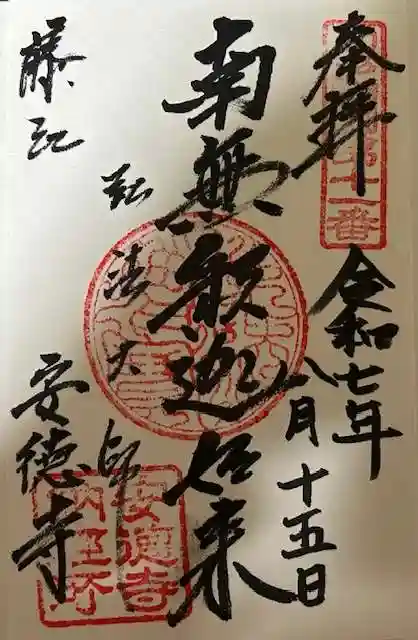 奉拝
令和七年
八月十五日
南無釈迦如来
弘法大師
藤江
安徳寺
十一番
安徳寺
納経所